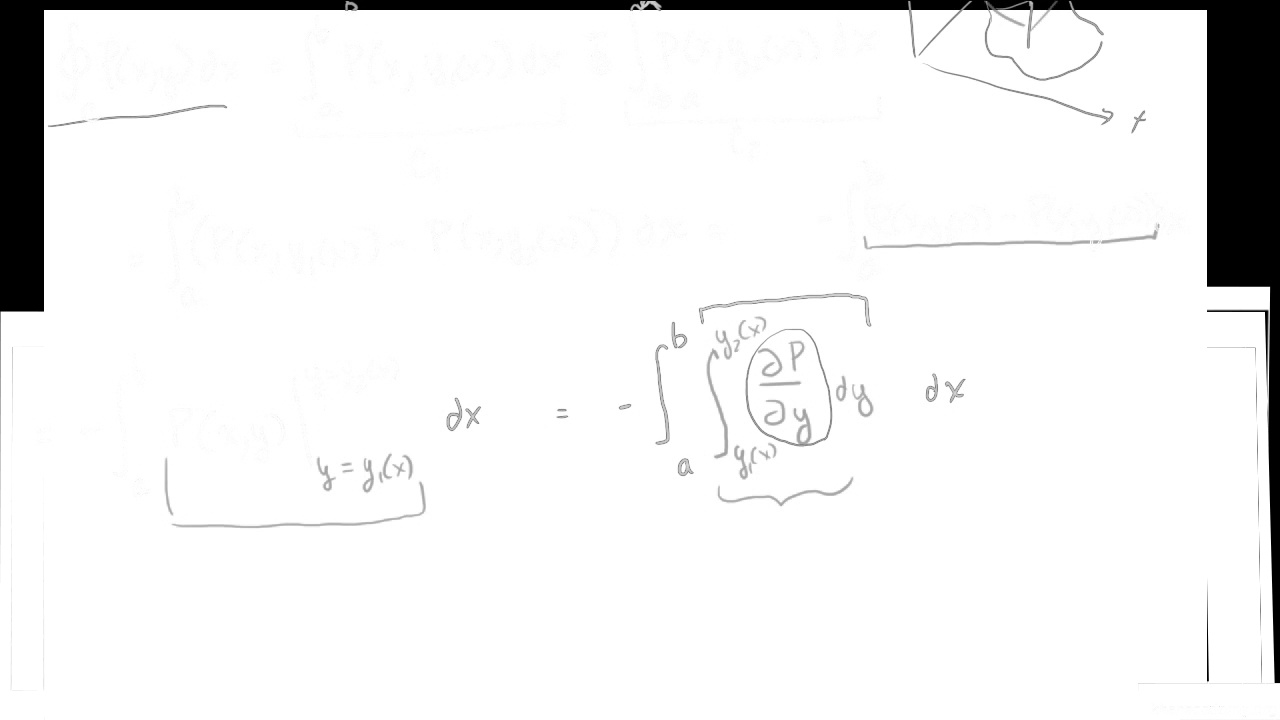 ∮ P(x,y) dx = ∫_a^b P(x, y₁(x)) dx + ∫_b^a P(x, y₂(x)) dx
C₁ C₂
x
= ∫_a^b (P(x, y₁(x)) - P(x, y₂(x))) dx = - ∫_a^b
= - ∫_a^b P(x,y) | y = y₁(x) dx = - ∫_a^b ∫_{y₁(x)}^{y₂(x)} ∂P/∂y dy dx